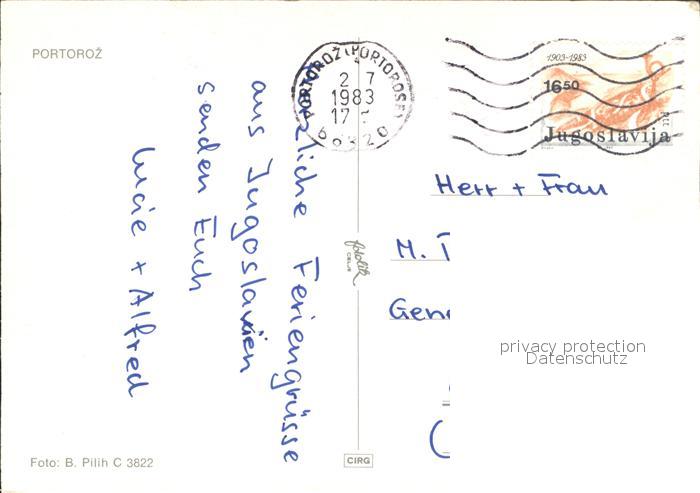 PORTOROŽ
PORTOROŽ (PORTOROSE)
2 7
1983
17
66320
1903-1983
16⁵⁰
Jugoslavija
PTT
Herzliche Feriengrüsse
aus Jugoslavien
senden Euch
Lucie + Alfred
Herr + Frau
M.
Gen
(
fotolik
CELJE
privacy protection
Datenschutz
CIRG
Foto: B. Pilih C 3822